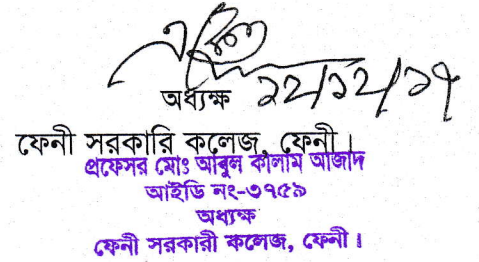 অধ্যক্ষ ১২/১২/১৭
ফেনী সরকারি কলেজ, ফেনী।
প্রফেসর মোঃ আবুল কালাম আজাদ
আইডি নং-৩৭৫৯
অধ্যক্ষ
ফেনী সরকারী কলেজ, ফেনী।